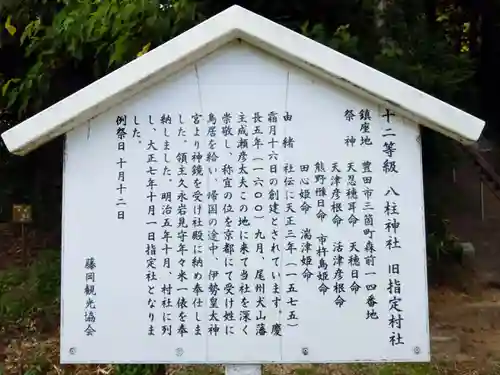 十二等級 八柱神社 旧指定村社
鎮座地 豊田市三箇町森前一四番地
祭神 天忍穂耳命 天穂日命
天津彦根命 活津彦根命
熊野樟日命 市杵島姫命
田心姫命 湍津姫命
由緒 社伝に天正三年(一五七五)
霜月十六日の創建とされています。慶
長五年(一六〇〇)九月、尾州犬山藩
主成瀬彦太夫この地に来て当社を深く
崇敬し、祢宜の位を京都にて受け姓に
鳥居を給い、帰国の途中、伊勢皇太神
宮より神鏡を受け社殿に納め奉仕しま
した。領主久永岩見守年々米一俵を奉
納しました。明治五年十月、村社に列
し、大正七年十月一日指定社となりま
した。
例祭日 十月十二日
藤岡観光協会